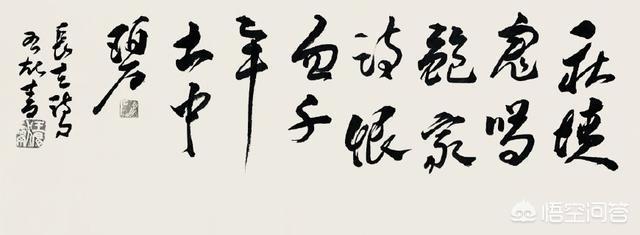 秋墳
鬼唱
鮑家
詩恨
血千
年
土中
碧
長吉詩句
悟空问答